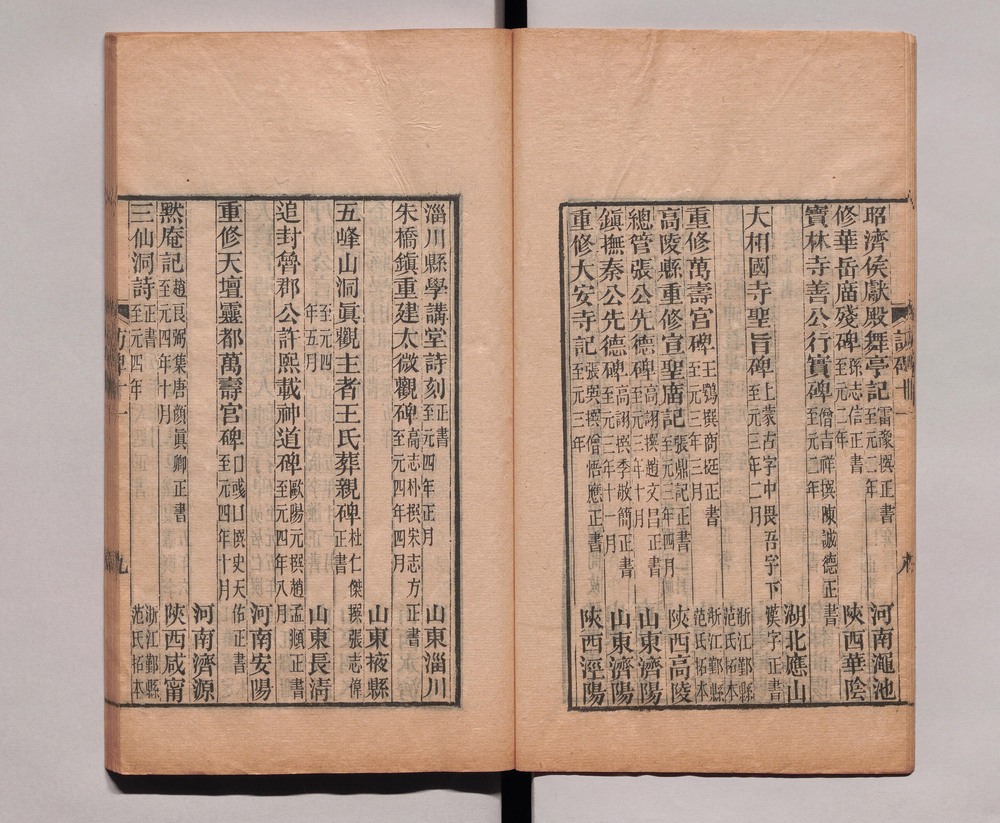 昭濟侯獻殿舞亭記 雷豫撰正書 至元二年 河南澠池
修華岳廟殘碑 孫志信正書 至元二年 陝西華陰
寶林寺善公行實碑 僧吉祥撰陳誠德正書 至元二年
湖北應山
大相國寺聖旨碑 上蒙古字中畏吾字下漢字正書 至元三年二月
浙江鄞縣范氏拓本
重修萬壽宮碑 王鶚撰商挺正書 至元三年三月 浙江鄞縣范氏拓本
高陵縣重修宣聖廟記 張鼎記正書 至元三年四月 陝西高陵
總管張公先德碑 高詡撰趙文昌正書 至元三年十月 山東濟陽
鎮撫秦公先德碑 高詡撰李敬簡正書 至元三年十一月 山東濟陽
重修大安寺記 張與撰僧悟應正書 至元三年 陝西涇陽
淄川縣學講堂詩刻 正書 至元四年正月 山東淄川
朱橋鎮重建太微觀碑 高志朴撰宋志方正書 至元四年四月
山東掖縣
五峰山洞眞觀主者王氏葬親碑 杜仁傑撰張志偉正書
至元四年五月 山東長清
追封魯郡公許熙載神道碑 歐陽元撰趙孟頫正書 至元四年八月
河南安陽
重修天壇靈都萬壽宮碑 口彧口撰史天佑正書 至元四年十月
河南濟源
默庵記 趙良弼集唐顔眞卿正書 至元四年十月 陝西咸甯
三仙洞詩 正書 至元四年 浙江鄞縣范氏拓本
訪碑十一 九